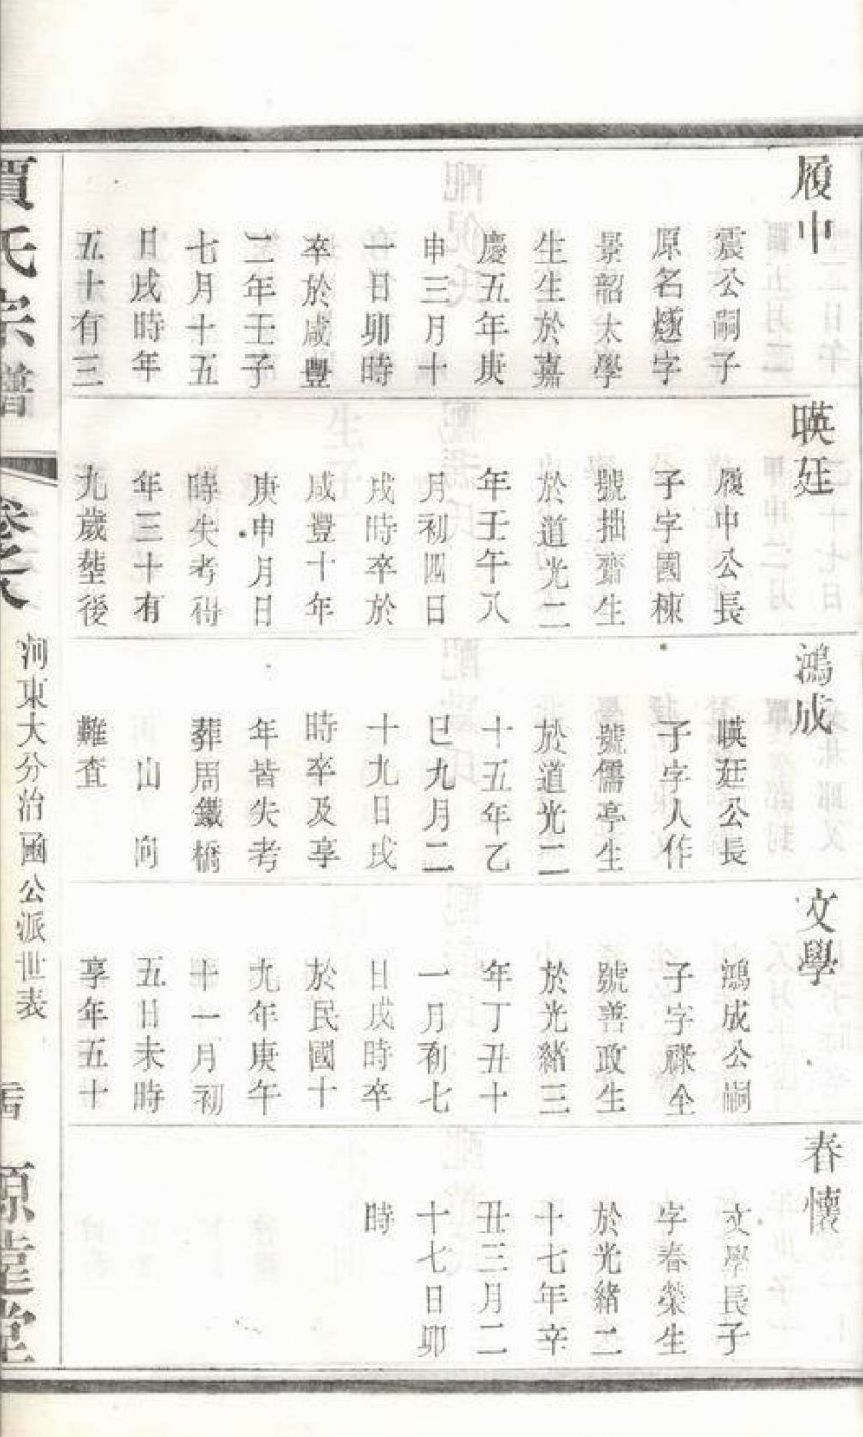 履中
震公嗣子
原名燧字
景韶太學
生生於嘉
慶五年庚
申三月十
一日卯時
卒於咸豐
二年壬子
七月十五
日戌時年
五十有三
暎廷
履中公長
子字國棟
號拙齋生
於道光二
年壬午八
月初四日
戌時卒於
咸豐十年
庚申月日
時失考得
年三十有
九歲塟後
鴻成
暎廷公長
子字人作
號儒亭生
於道光二
十五年乙
巳九月二
十九日戌
時卒及享
年皆失考
葬周鐵橋
山向
難査
文學
鴻成公嗣
子字祿全
號善政生
於光緒三
年丁丑十
一月初七
日戌時卒
於民國十
九年庚午
十一月初
五日未時
享年五十
春懷
文學長子
字春榮生
於光緒二
十七年辛
丑三月二
十七日卯
時
賈氏宗譜
卷之八
河東大分治國公派世表
源遠堂